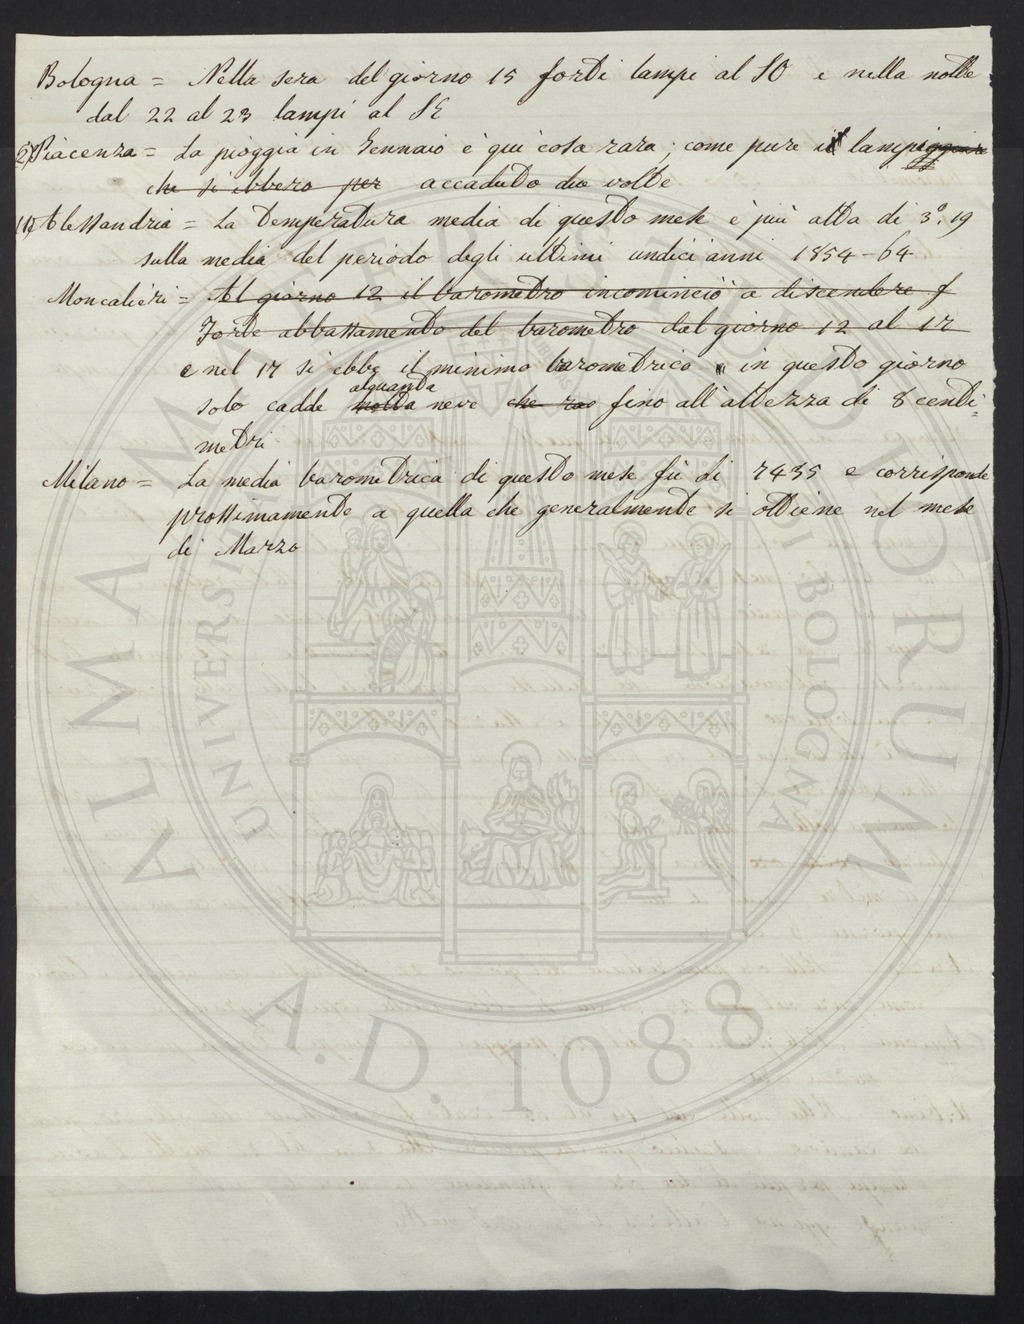 Bologna = Nella sera del giorno 15 forti lampi al SO e nella notte
dal 22 al 23 lampi al SE
2) Piacenza = La pioggia in Gennaio è qui cosa rara; come pure il lampeggiare
che si ebbero per accaduto due volte
Alessandria = La temperatura media di questo mese è più alta di 3°.19
sulla media del periodo degli ultimi undici anni 1854-64
Moncalieri = Al giorno 12 il barometro incominciò a discendere f
Forte abbassamento del barometro dal giorno 12 al 17
e nel 17 si ebbe il minimo barometrico in questo giorno
alquanta
solo cadde molta neve che fino all'altezza di 8 centi=
metri
Milano = La media barometrica di questo mese fù di 7435 e corrisponde
prossimamente a quella che generalmente si ottiene nel mese
di Marzo
ALMA MATER STUDIORUM
UNIVERSITÀ DI BOLOGNA
A.D. 1088